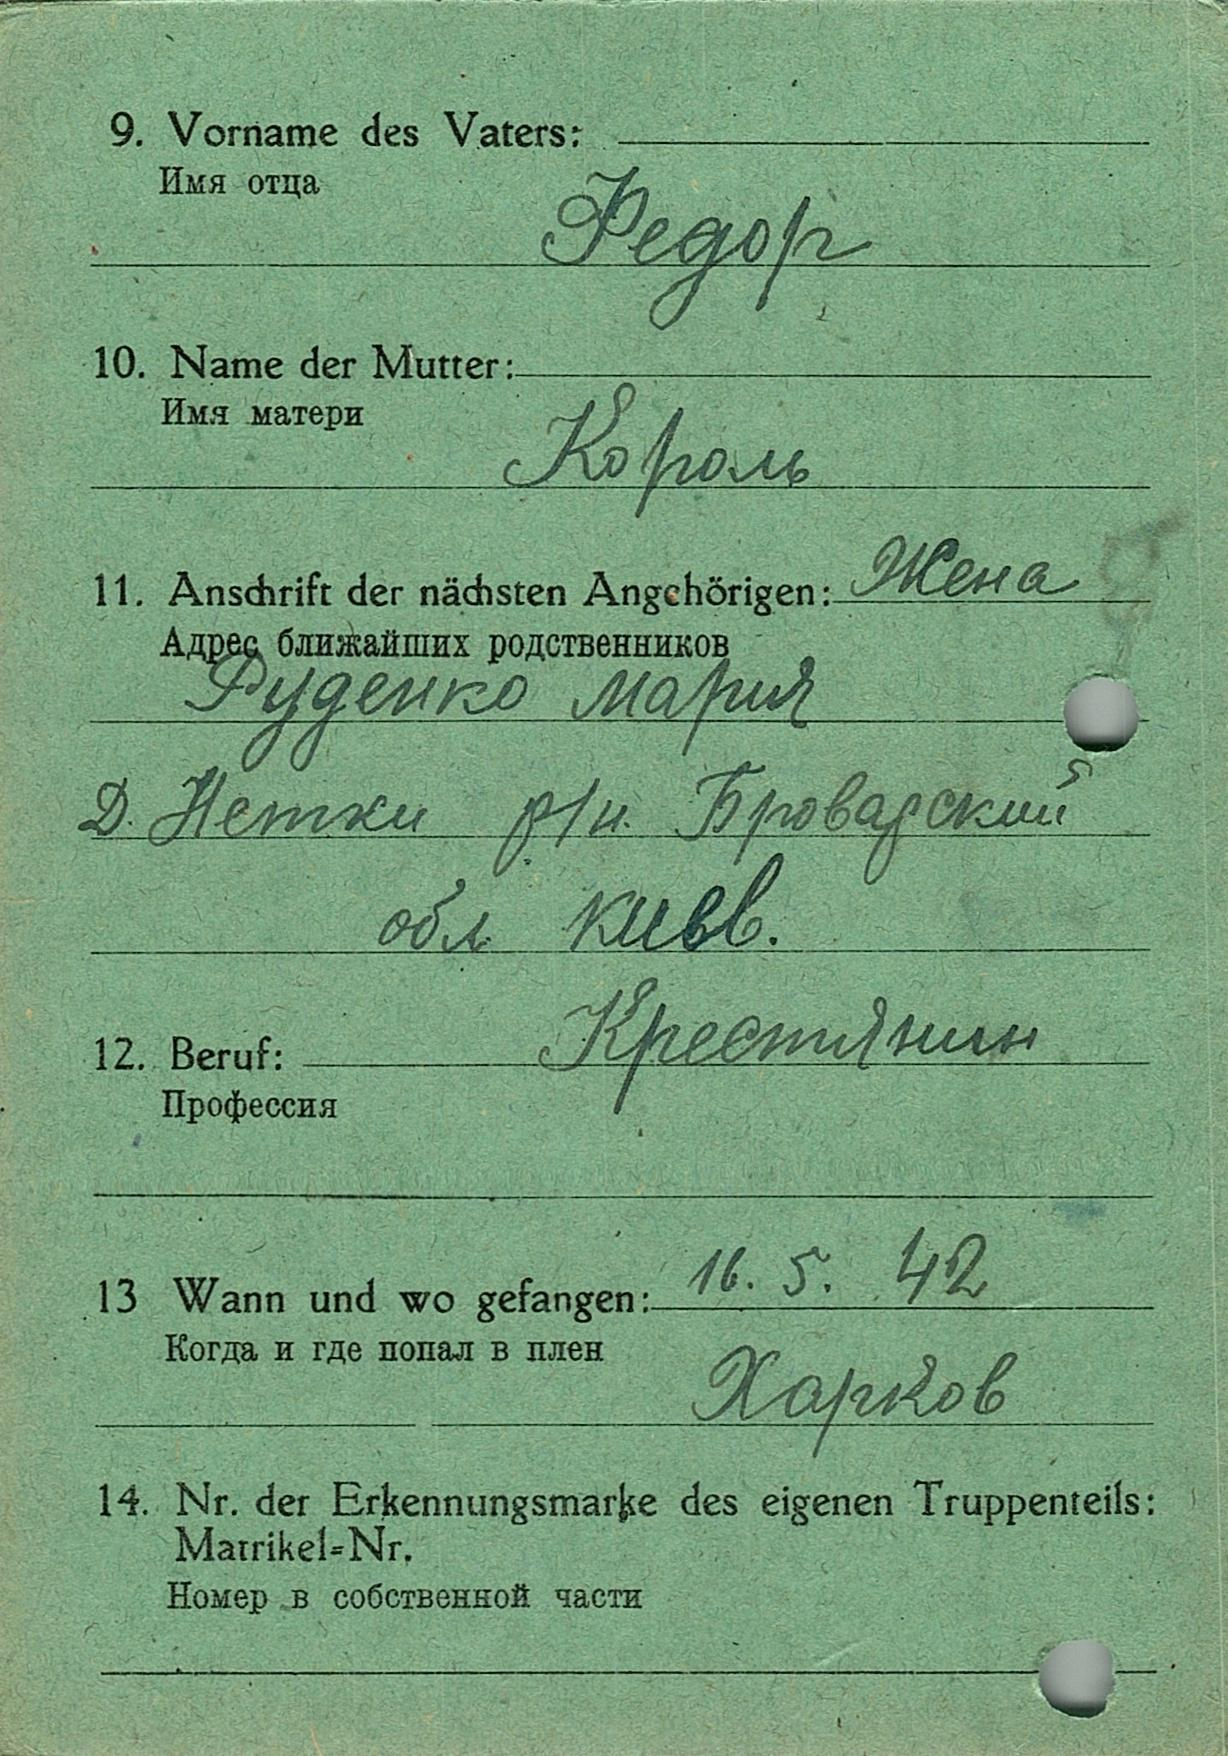 9. Vorname des Vaters:
Имя отца
Федор
10. Name der Mutter:
Имя матери
Король
11. Anschrift der nächsten Angehörigen: Жена
Адрес ближайших родственников
Руденко Мария
Д. р/н. Броварский
обл. киев.
12. Beruf: Крестянин
Профессия
13 Wann und wo gefangen: 16. 5. 42
Когда и где попал в плен
Харков
14. Nr. der Erkennungsmarke des eigenen Truppenteils:
Matrikel=Nr.
Номер в собственной части